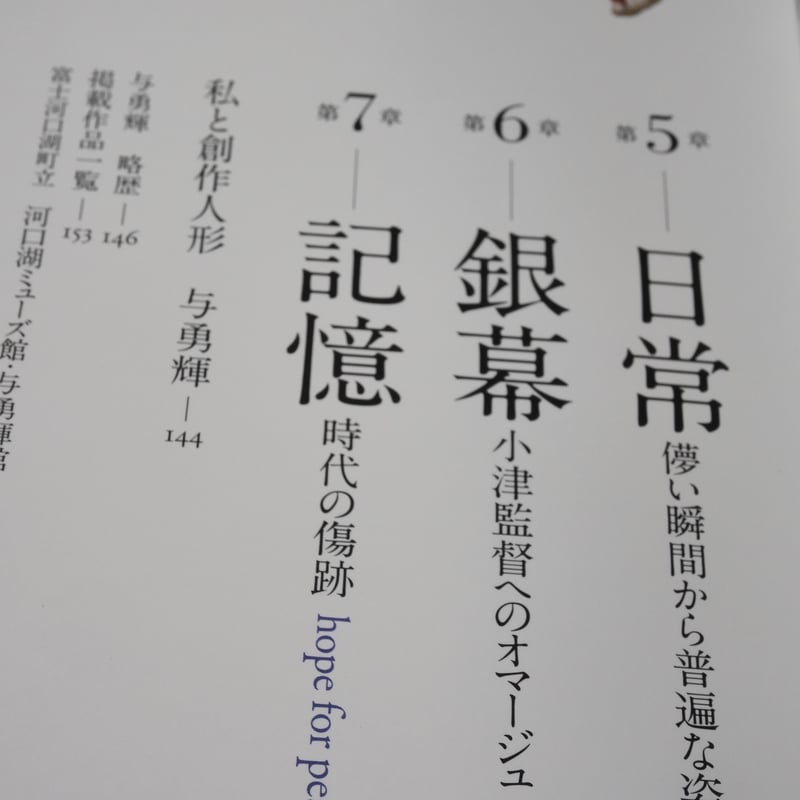 第5章
日常 儚い瞬間から普遍な姿
第6章
銀幕 小津監督へのオマージュ
第7章
記憶 時代の傷跡 hope for pe
私と創作人形 与勇輝 144
与勇輝 略歴 146
掲載作品一覧 153
富士河口湖町立 河口湖ミューズ館・与勇輝館